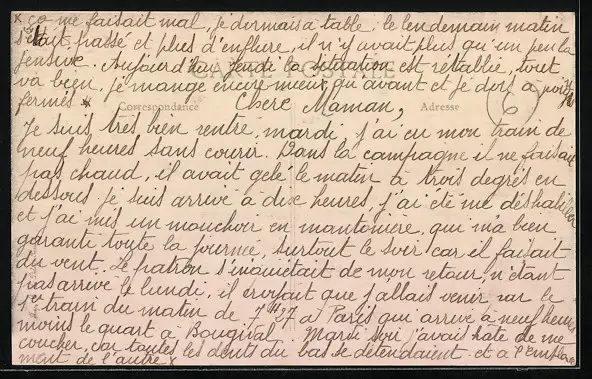 x ça me faisait mal, je dormais à table. le lendemain matin
s'était passé et plus d'enflure, il n'y avait plus qu'un peu la
gensive. Aujourd'hui Jeudi la situation est rétablie, tout
CARTE POSTALE
va bien, je mange encore mieux qu'avant et je dors à poings
fermés x Chère Maman,
Correspondance Adresse
6
Je suis très bien rentré, mardi, j'ai eu mon train de
neuf heures sans courir. Dans la campagne il ne faisait
pas chaud, il avait gelé le matin à trois degrés en
dessous, je suis arrivé à dix heures, j'ai été me déshabiller
et j'ai mis un mouchoir en mantonière, qui m'a bien
garanti toute la journée, surtout le soir car il faisait
du vent. Le patron s'inquiétait de mon retour, n'étant
pas arrivé le lundi, il croyait que j'allais venir par le
1er train du matin de 7H37 à Paris qui arrive à neuf heures
moins le quart à Bougival. Mardi soir j'avais hâte de me
coucher, car toutes les dents du bas se détendaient et à l'emplace
ment de l'autre x